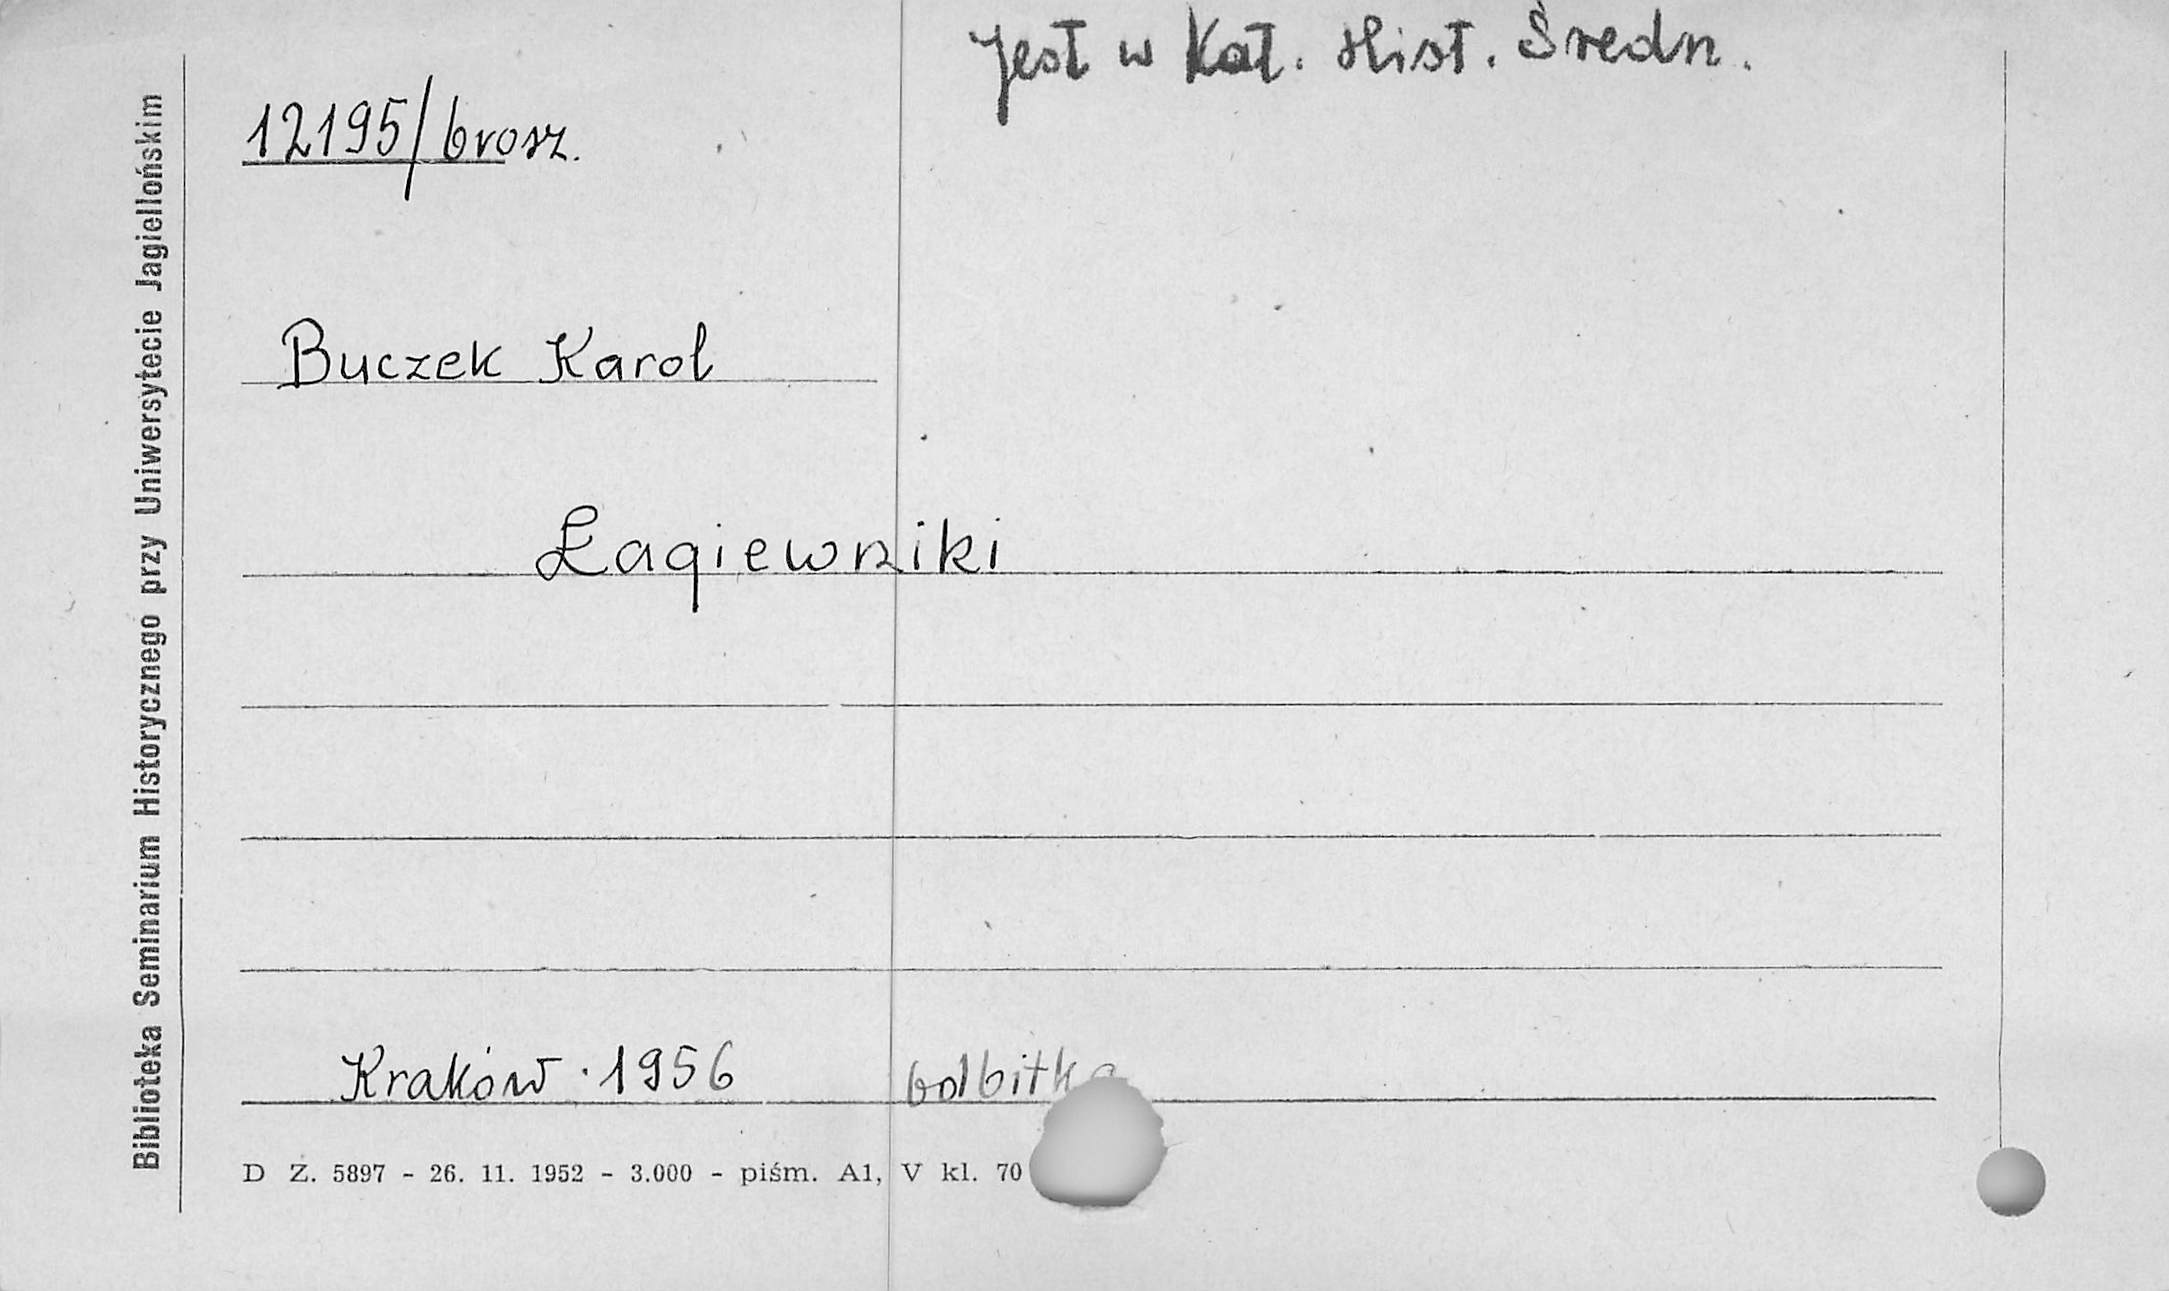 Jest w Kat. Hist. Średn.
12195/brosz.
Buczek Karol
Łagiewniki
Kraków 1956 odbitka
D Z. 5897 - 26. 11. 1952 - 3.000 - piśm. A1, V kl. 70
Biblioteka Seminarium Historycznego przy Uniwersytecie Jagiellońskim